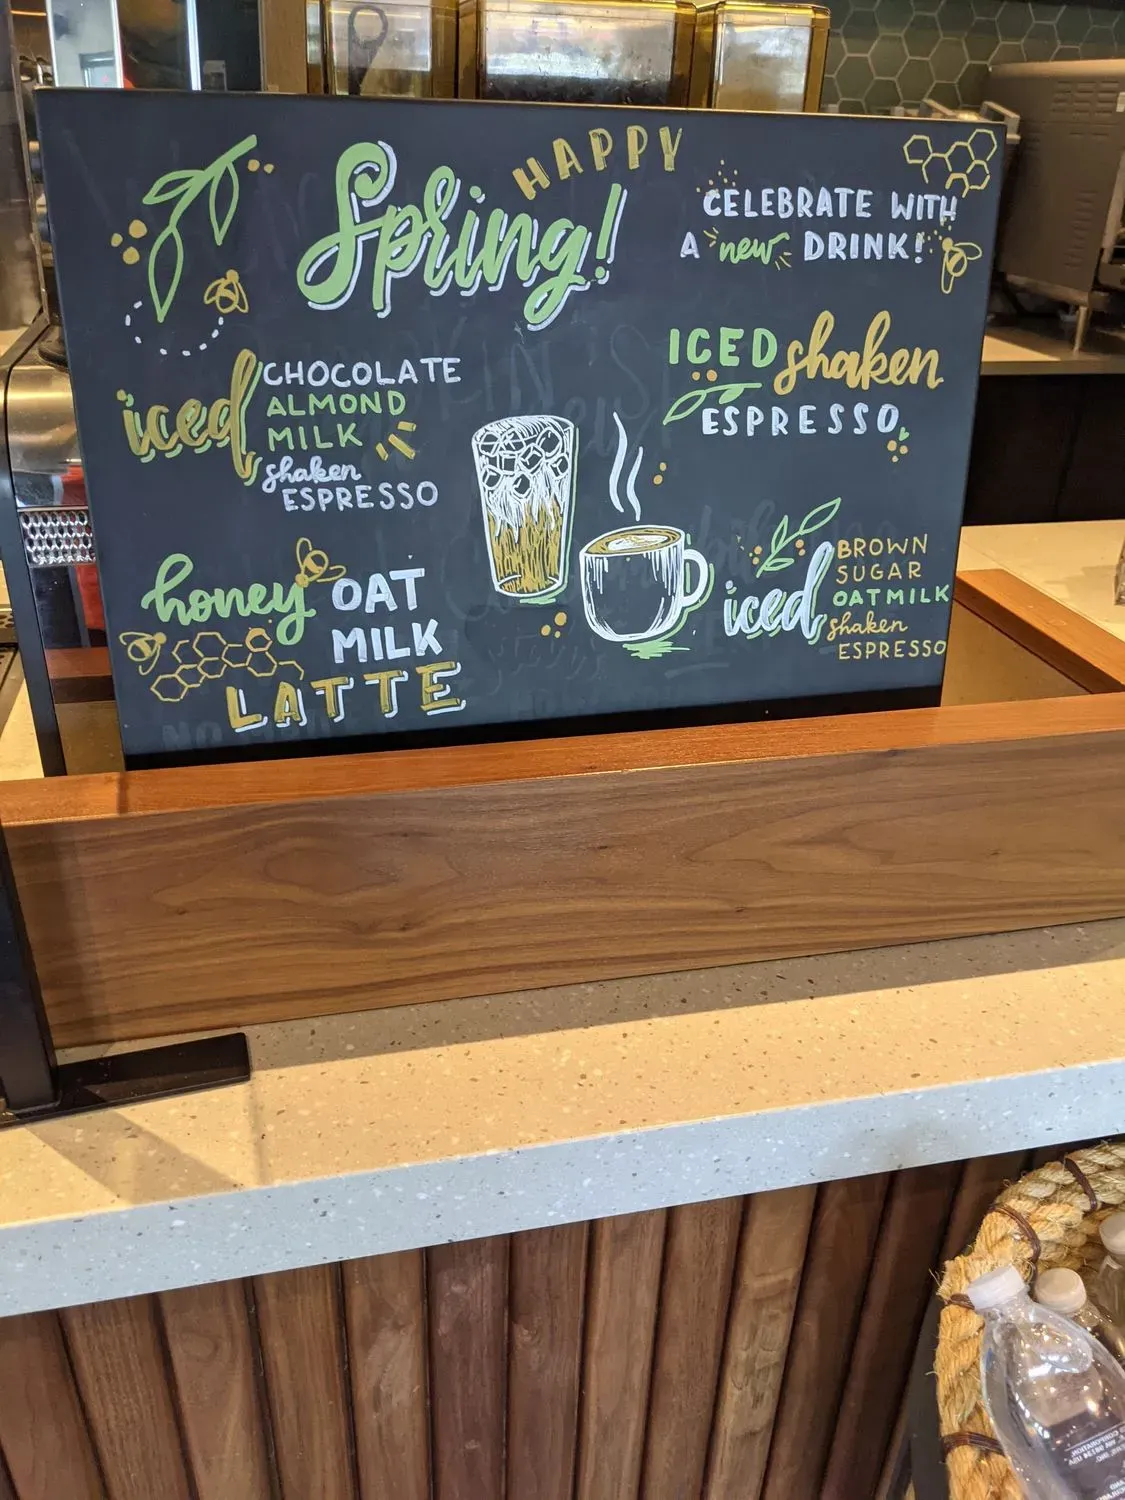 HAPPY
Spring!
CELEBRATE WITH
A new DRINK!
iced CHOCOLATE
ALMOND
MILK
shaken
ESPRESSO
ICED shaken
ESPRESSO
honey OAT
MILK
LATTE
iced BROWN
SUGAR
OATMILK
shaken
ESPRESSO
CORPORATION